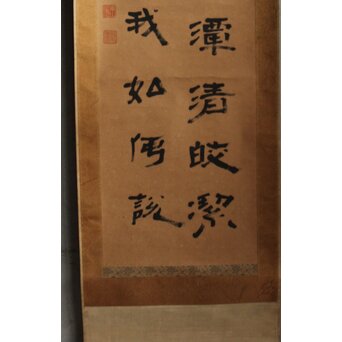 潭清皎潔
我如何說